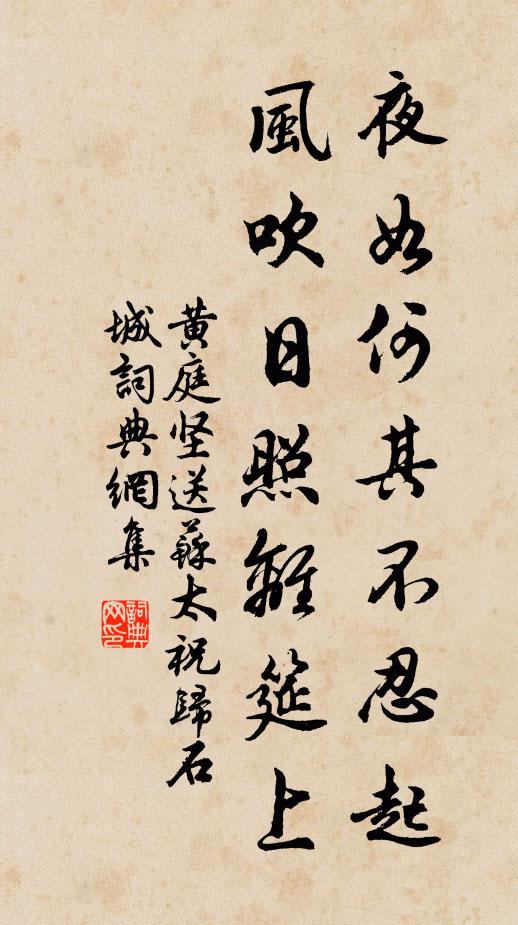 夜如何其不忍起
風吹日照離筵上
黄庭坚送蘇太祝歸石
城詞典網集
詞典网印